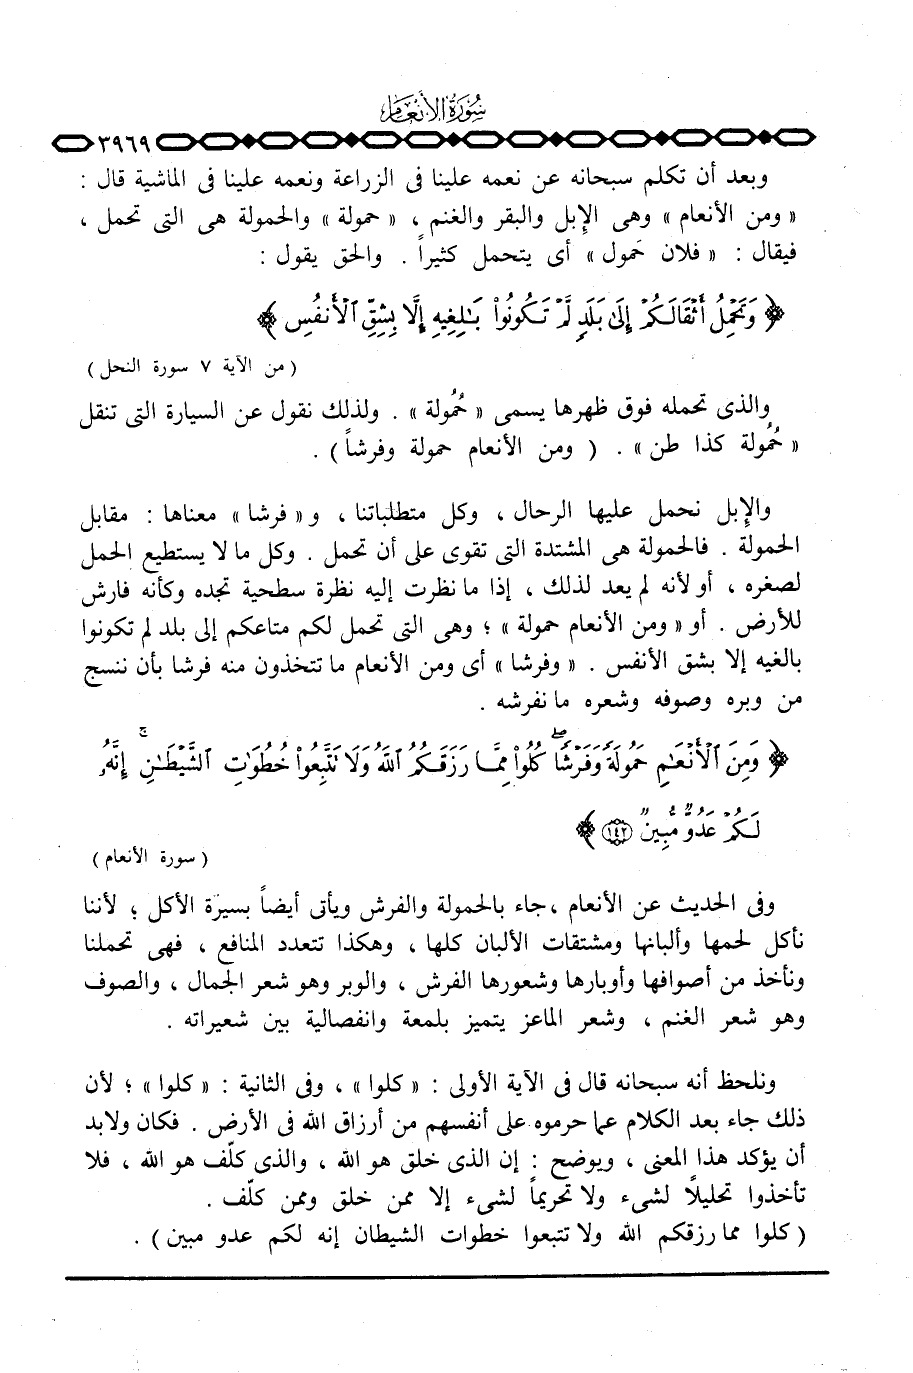 سورة الأنعام
٣٩٦٩
وبعد أن تكلم سبحانه عن نعمه علينا فى الزراعة ونعمه علينا فى الماشية قال :
« ومن الأنعام » وهى الإبل والبقر والغنم ، « حمولة » والحمولة هى التى تحمل ،
فيقال : « فلان حَمول » أى يتحمل كثيراً . والحق يقول :
﴿ وَتَحْمِلُ أَثْقَالَكُمْ إِلَىٰ بَلَدٍ لَّمْ تَكُونُوا۟ بَٰلِغِيهِ إِلَّا بِشِقِّ ٱلْأَنفُسِ ﴾
( من الآية ٧ سورة النحل )
والذى تحمله فوق ظهرها يسمى « حُمُولة » . ولذلك نقول عن السيارة التى تنقل
« حُمُولة كذا طن » . ( ومن الأنعام حمولة وفرشاً ) .
والإبل نحمل عليها الرحال ، وكل متطلباتنا ، و« فرشا » معناها : مقابل
الحمولة . فالحمولة هى المشتدة التى تقوى على أن تحمل . وكل ما لا يستطيع الحمل
لصغره ، أو لأنه لم يعد لذلك ، إذا ما نظرت إليه نظرة سطحية تجده وكأنه فارش
للأرض . أو « ومن الأنعام حمولة » ؛ وهى التى تحمل لكم متاعكم إلى بلد لم تكونوا
بالغيه إلا بشق الأنفس . « وفرشا » أى ومن الأنعام ما تتخذون منه فرشا بأن ننسج
من وبره وصوفه وشعره ما نفرشه .
﴿ وَمِنَ ٱلْأَنْعَٰمِ حَمُولَةً وَفَرْشًا ۚ كُلُوا۟ مِمَّا رَزَقَكُمُ ٱللَّهُ وَلَا تَتَّبِعُوا۟ خُطُوَٰتِ ٱلشَّيْطَٰنِ ۚ إِنَّهُۥ
لَكُمْ عَدُوٌّ مُّبِينٌ ١٤٢ ﴾
( سورة الأنعام )
وفى الحديث عن الأنعام ،جاء بالحمولة والفرش ويأتى أيضاً بسيرة الأكل ؛ لأننا
نأكل لحمها وألبانها ومشتقات الألبان كلها ، وهكذا تتعدد المنافع ، فهى تحملنا
ونأخذ من أصوافها وأوبارها وشعورها الفرش ، والوبر وهو شعر الجمال ، والصوف
وهو شعر الغنم ، وشعر الماعز يتميز بلمعة وانفصالية بين شعيراته .
ونلحظ أنه سبحانه قال فى الآية الأولى : « كلوا » ، وفى الثانية : « كلوا » ؛ لأن
ذلك جاء بعد الكلام عما حرموه على أنفسهم من أرزاق الله فى الأرض . فكان ولابد
أن يؤكد هذا المعنى ، ويوضح : إن الذى خلق هو الله ، والذى كلّف هو الله ، فلا
تأخذوا تحليلاً لشىء ولا تحريماً لشىء إلا ممن خلق وممن كلّف .
( كلوا مما رزقكم الله ولا تتبعوا خطوات الشيطان إنه لكم عدو مبين ) .